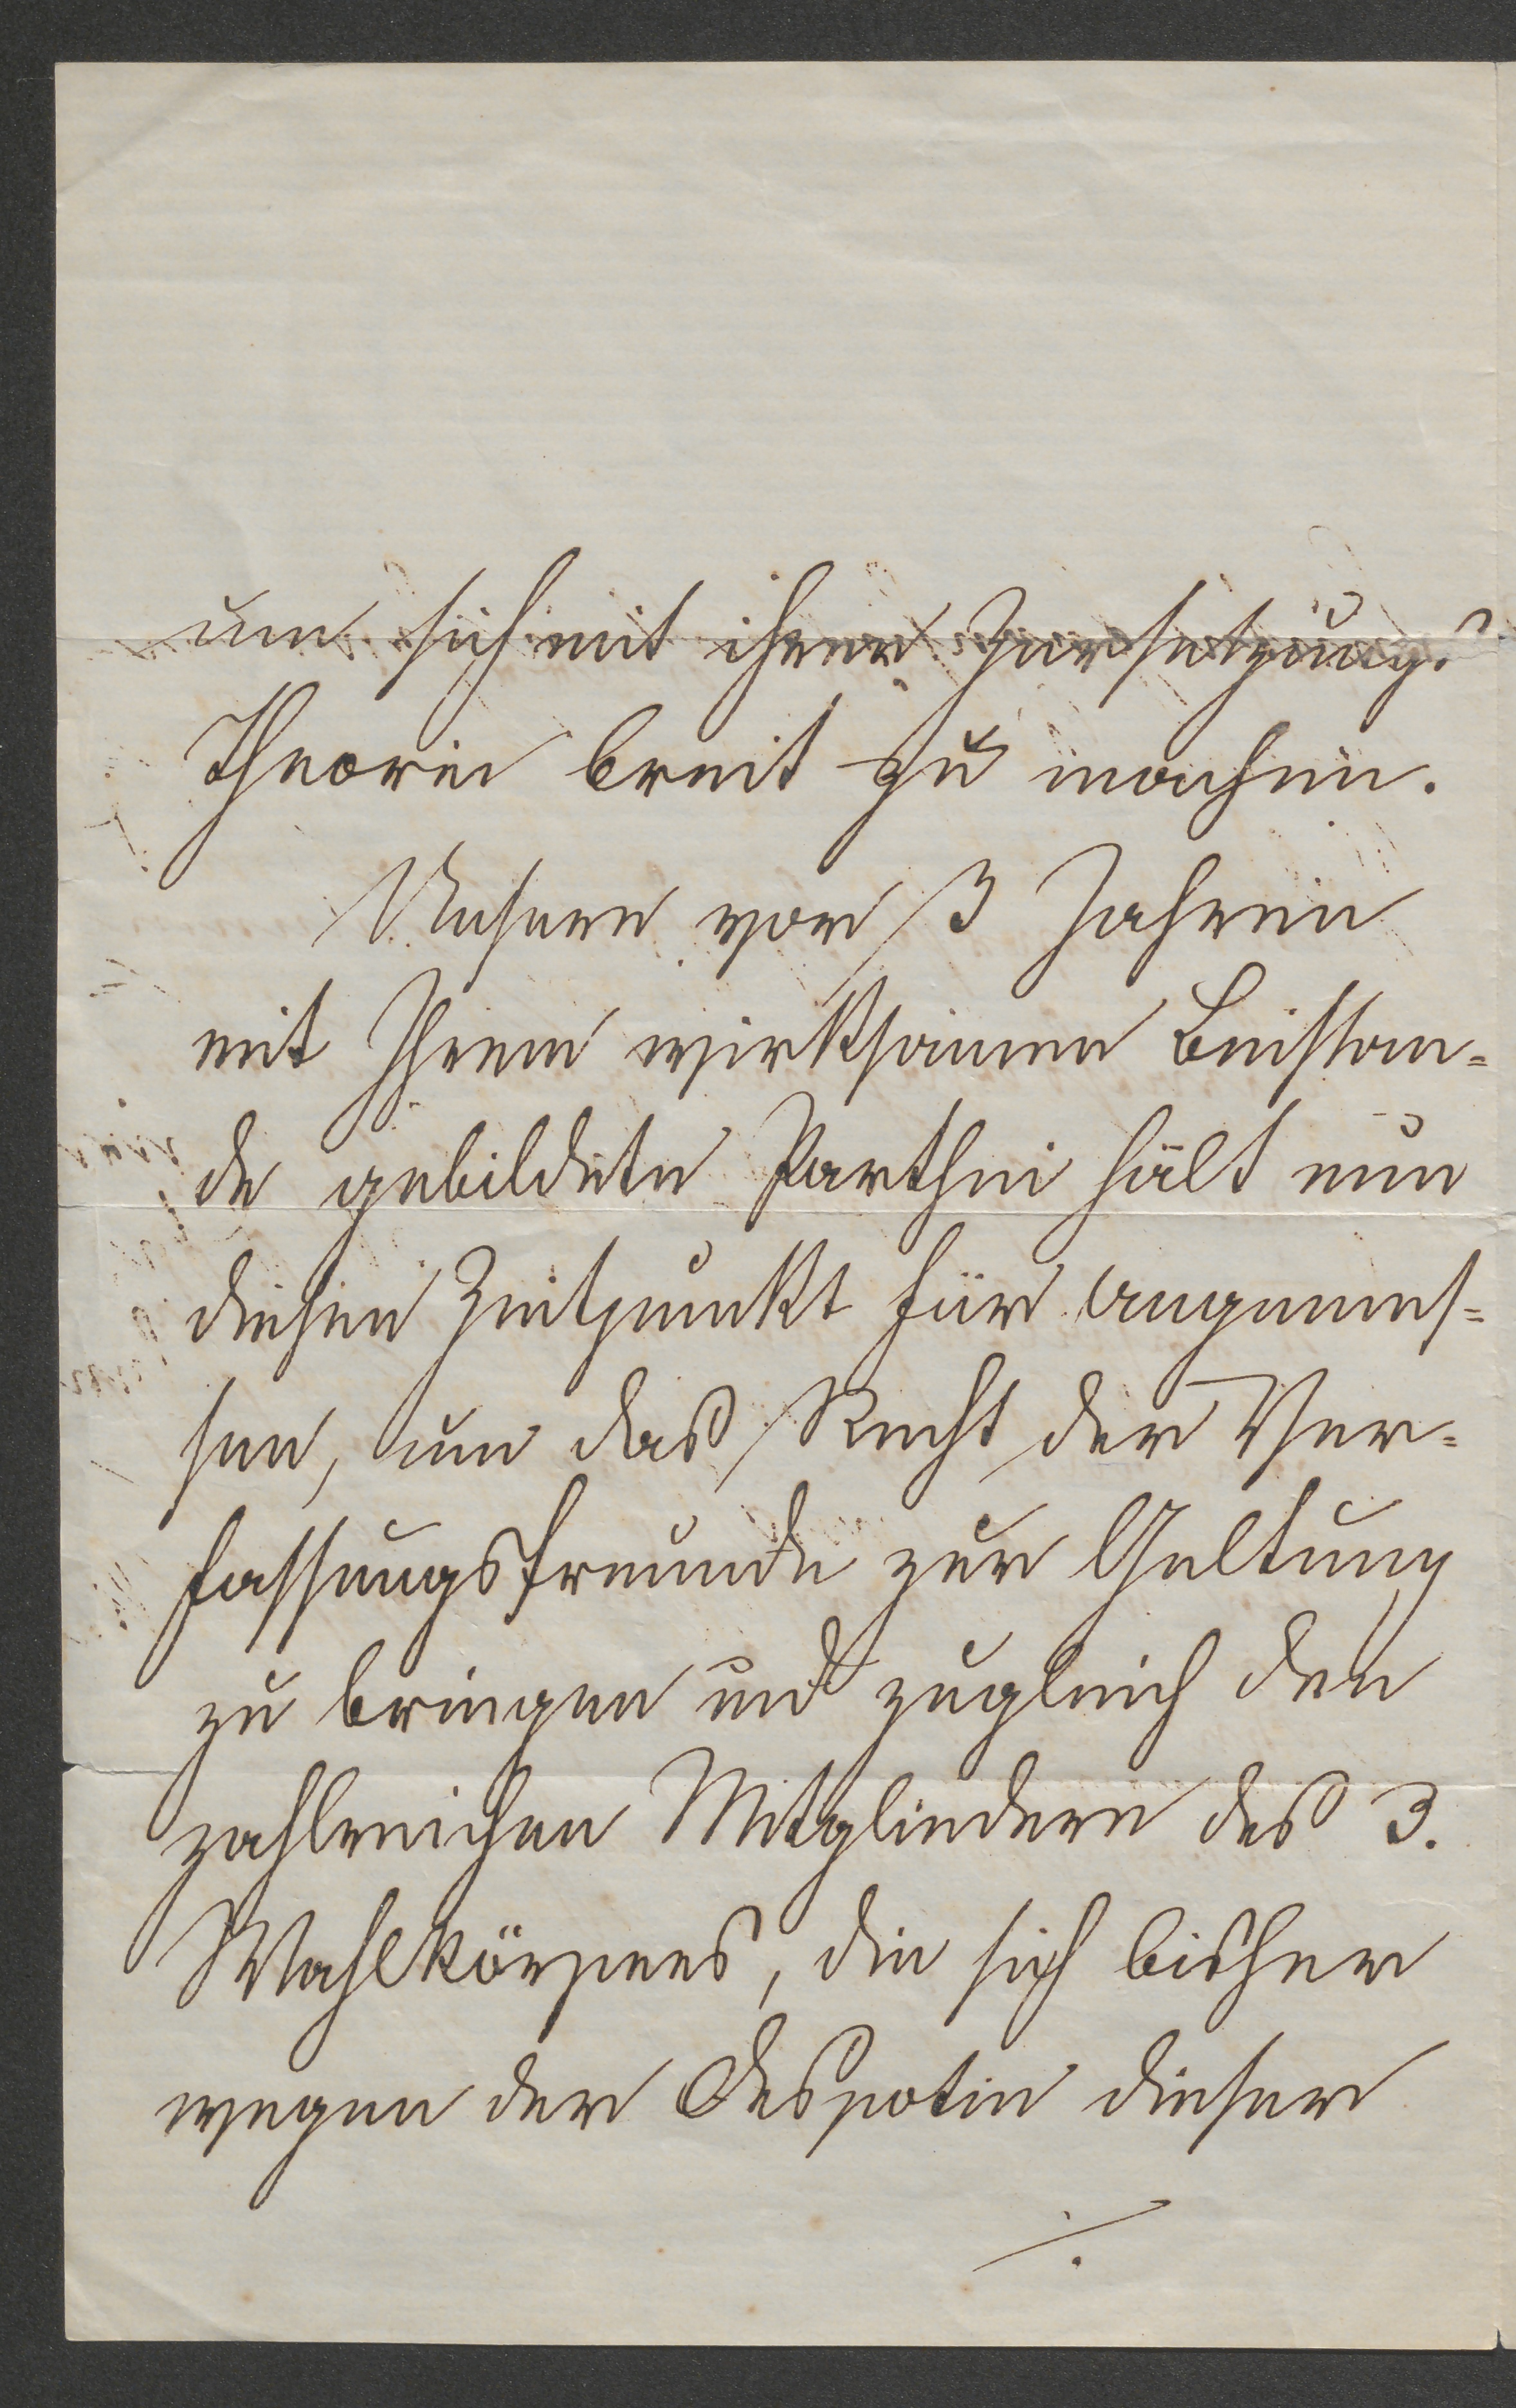 um sich mit ihrer Zersetzungs
Theorie breit zu machen.
Unsere vor 3 Jahren
mit Ihrem wirksamen Beistan=
de gebildete Parthei hält nun
diesen Zeitpunkt für angemes=
sen, um das Recht der Ver=
fassungsfreunde zur Geltung
zu bringen und zugleich den
zahlreichen Mitgliedern des 3.
Wahlkörpers, die sich bisher
wegen der Despotie dieser
./.